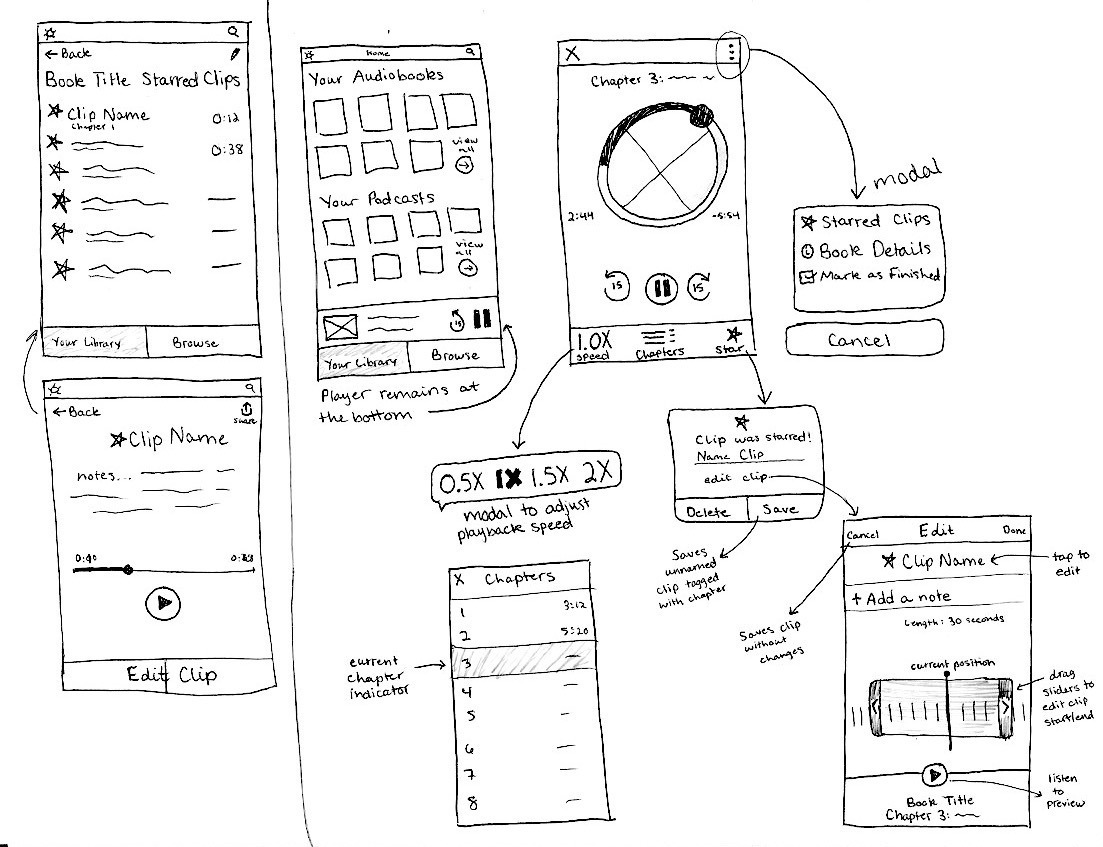 ← Back
Book Title Starred Clips
Clip Name 0:12
Chapter 1
0:38
Your Library Browse
← Back
share
Clip Name
notes...
0:40
Edit Clip
Home
Your Audiobooks
view
all
Your Podcasts
view
all
15
Your Library Browse
Player remains at
the bottom
X
Chapter 3:
2:44 -5:54
15 15
1.0X
speed Chapters Star
modal
Starred Clips
Book Details
Mark as Finished
Cancel
0.5X 1X 1.5X 2X
modal to adjust
playback speed
Clip was starred!
Name Clip
edit clip
Delete Save
Saves
unnamed
clip tagged
with chapter
X Chapters
1 3:12
2 5:20
3
4
5
6
7
8
current
chapter
indicator
Cancel Edit Done
Clip Name
tap to
edit
+ Add a note
Length: 30 seconds
Saves clip
without
changes
current position
drag
sliders to
edit clip
start/end
listen
to
preview
Book Title
Chapter 3: